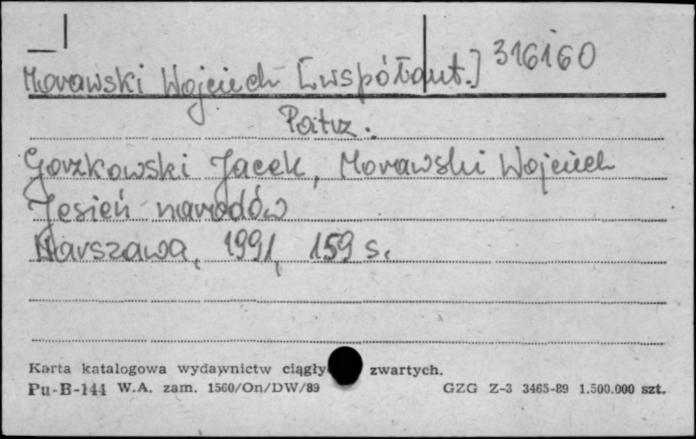 Morawski Wojciech [współaut.] 316160
Patrz:
Gorzkowski Jacek, Morawski Wojciech
Jesień narodów
Warszawa, 1991, 159 s.
Karta katalogowa wydawnictw ciągły zwartych.
Pu-B-144 W.A. zam. 1560/On/DW/89 GZG Z-3 3465-89 1.500.000 szt.